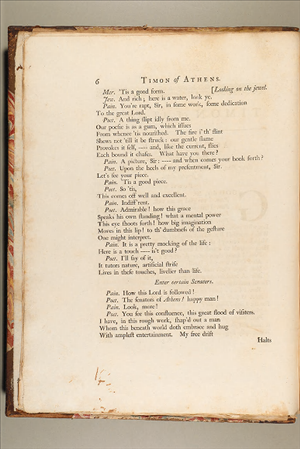 6 TIMON of ATHENS.
Mer. 'Tis a good form. [Looking on the jewel.
Jew. And rich; here is a water, look ye.
Pain. You're rapt, Sir, in some work, some dedication
To the great Lord.
Poet. A thing slipt idly from me.
Our poesie is as a gum, which issues
From whence 'tis nourished. The fire i' th' flint
Shews not 'till it be struck: our gentle flame
Provokes it self, —— and, like the current, flies
Each bound it chafes. What have you there?
Pain. A picture, Sir: —— and when comes your book forth?
Poet. Upon the heels of my presentment, Sir.
Let's see your piece.
Pain. 'Tis a good piece.
Poet. So 'tis,
This comes off well and excellent.
Pain. Indiff'rent.
Poet. Admirable! how this grace
Speaks his own standing! what a mental power
This eye shoots forth! how big imagination
Moves in this lip! to th' dumbness of the gesture
One might interpret.
Pain. It is a pretty mocking of the life:
Here is a touch —— is't good?
Poet. I'll say of it,
It tutors nature, artificial strife
Lives in these touches, livelier than life.
Enter certain Senators.
Pain. How this Lord is followed!
Poet. The senators of Athens! happy man!
Pain. Look, more!
Poet. You see this confluence, this great flood of visiters.
I have, in this rough work, shap'd out a man
Whom this beneath world doth embrace and hug
With amplest entertainment. My free drift
Halts